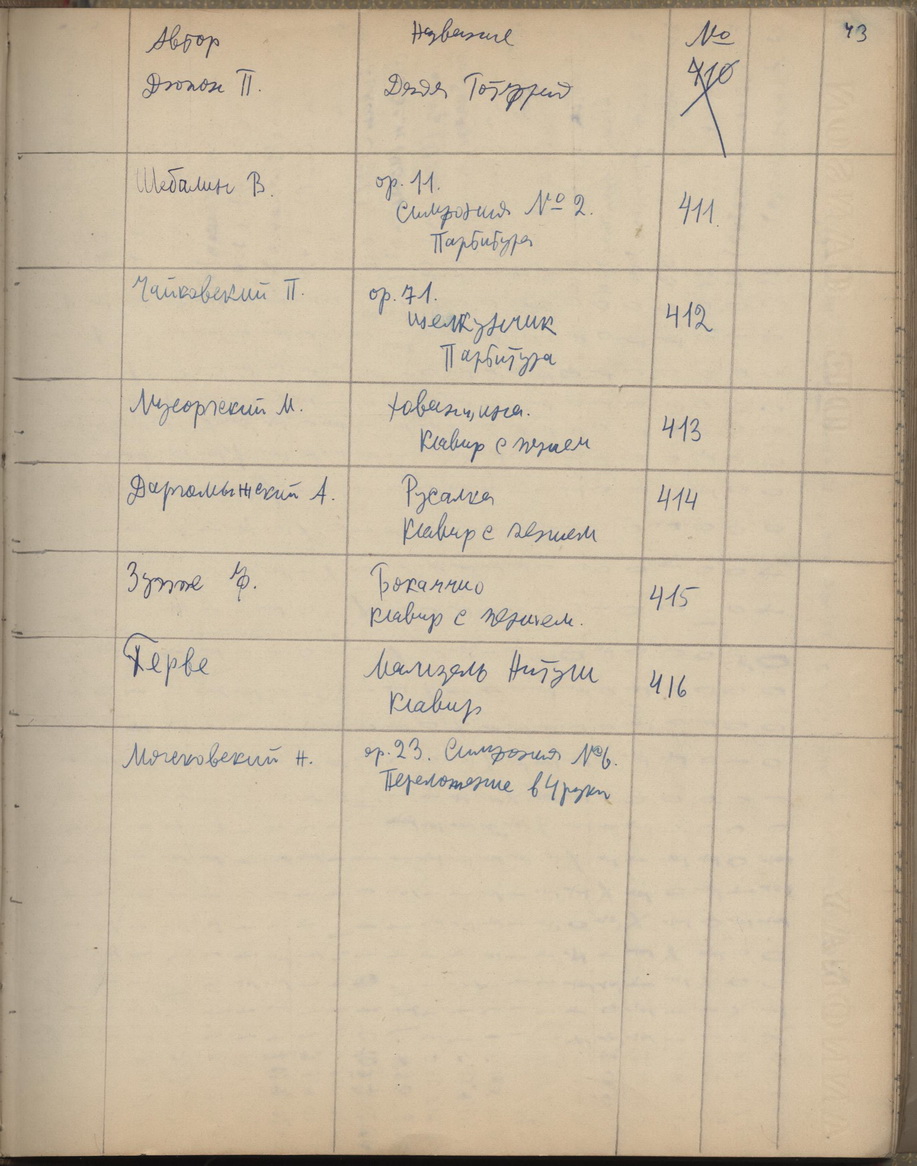 43
Автор Название №
Дюпон П. Дядя Готфрид 410
Шебалин В. op. 11. 411
Симфония № 2.
Партитура
Чайковский П. op. 71. 412
Щелкунчик
Партитура
Мусоргский М. Хованщина. 413
Клавир с пением
Даргомыжский А. Русалка 414
Клавир с пением
Зуппе Ф. Бокаччио 415
клавир с пением.
Герве Мамзель Нитуш 416
Клавир
Мясковский Н. op. 23. Симфония № 6.
Переложение в 4 руки